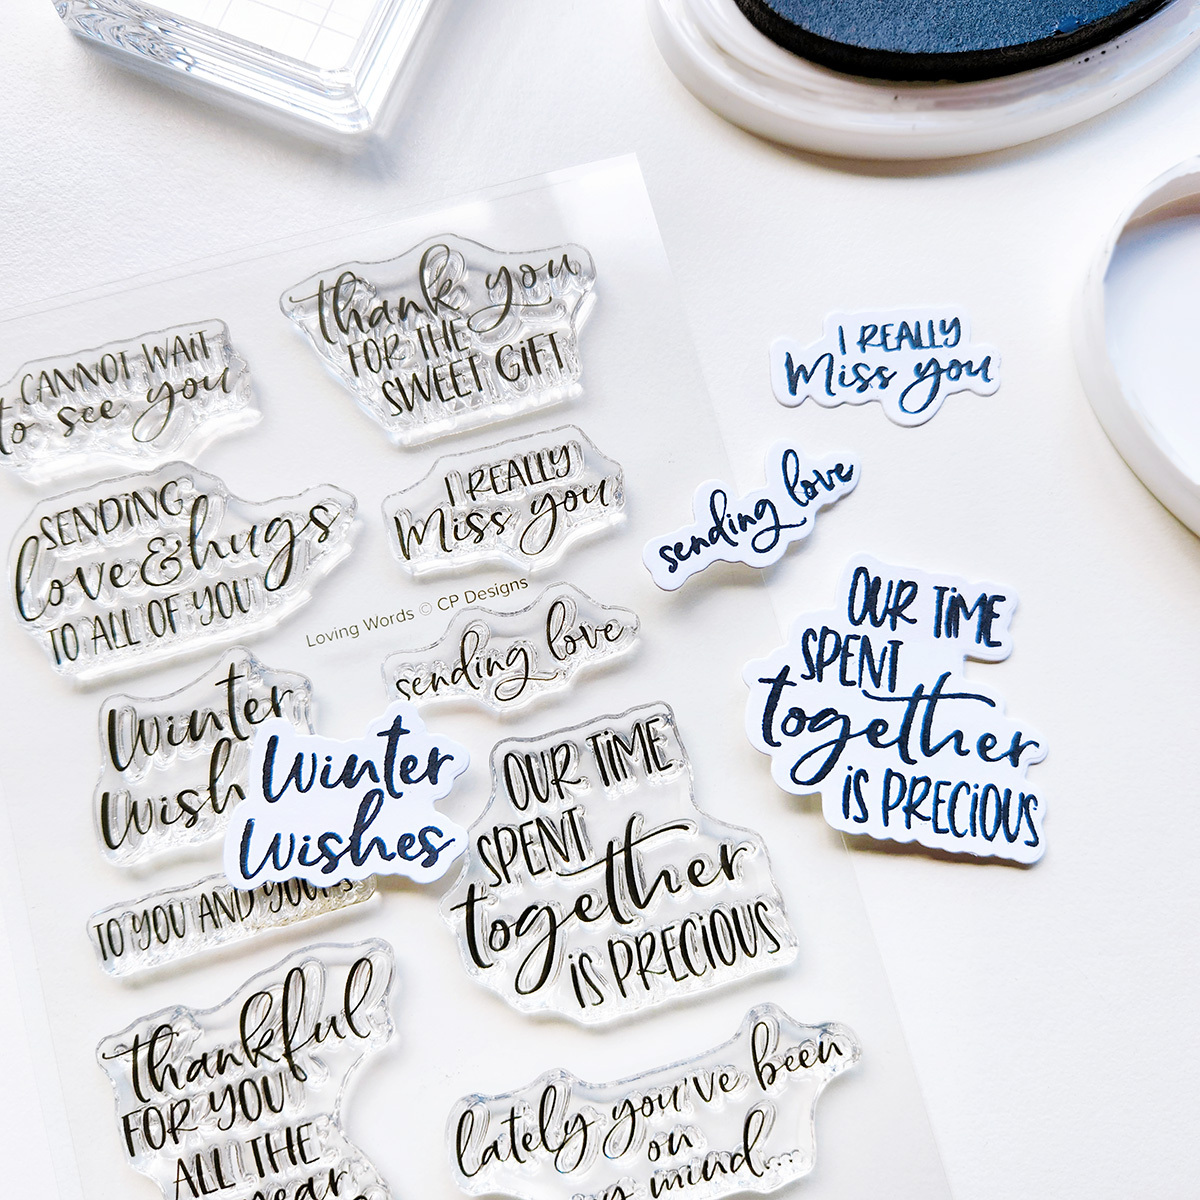 CANNOT WAIT
to see you
thank you
FOR THE
SWEET GIFT
SENDING
love & hugs
TO ALL OF YOU
I REALLY
Miss you
Loving Words © CP Designs
sending love
Winter
Wish
TO YOU AND YOURS
OUR TIME
SPENT
together
IS PRECIOUS
thankful
FOR YOU
ALL THE
year
lately you've been
on
my mind...
Winter
Wishes
I REALLY
Miss you
sending love
OUR TIME
SPENT
together
IS PRECIOUS